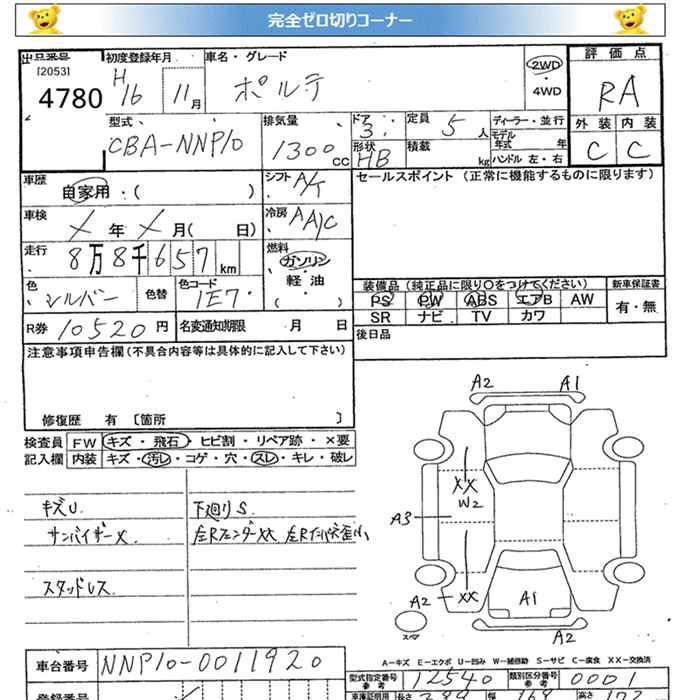 完全ゼロ切りコーナー
出品番号 初度登録年月 車名・グレード 評価点
[2053] H16 11月 ポルテ 2WD ・ 4WD RA
4780
型式 排気量 ドア 定員 ディーラー・並行 外装 内装
CBA-NNP10 1300cc 3 5人 モデル年式 年 C C
形状 HB 積載 kg ハンドル 左・右
車歴 自家用・( ) シフト A/T セールスポイント (正常に機能するものに限ります)
車検 X年X月( 日) 冷房 AA/C
走行 8万8千657km 燃料 ガソリン・軽油・( )
装備品 (純正品に限り○をつけてください) 新車保証書
色 シルバー 色替 色コード 1E7 PS PW ABS エアB AW 有・無
SR ナビ TV カワ
R券 10520円 名変通知期限 月 日 後日品
注意事項申告欄(不具合内容等は具体的に記入して下さい)
修復歴 有 [箇所 ]
検査員 FW キズ・飛石・ヒビ割・リペア跡・×要
記入欄 内装 キズ・汚レ・コゲ・穴・スレ・キレ・破レ
キズU. 下廻りS.
サンバイザーX. 左RフェンダXX
スタッドレス
A2 A1
XX
W2
A3
A2 XX A1
A2
スペア
A-キズ E-エクボ U-凹み W-補修跡 S-サビ C-腐食 XX-交換済
車台番号 NNP10-0011920 型式指定番号 参考 12540 類別区分番号 参考 0001
登録番号 車庫証明用 長さ 幅 高さ